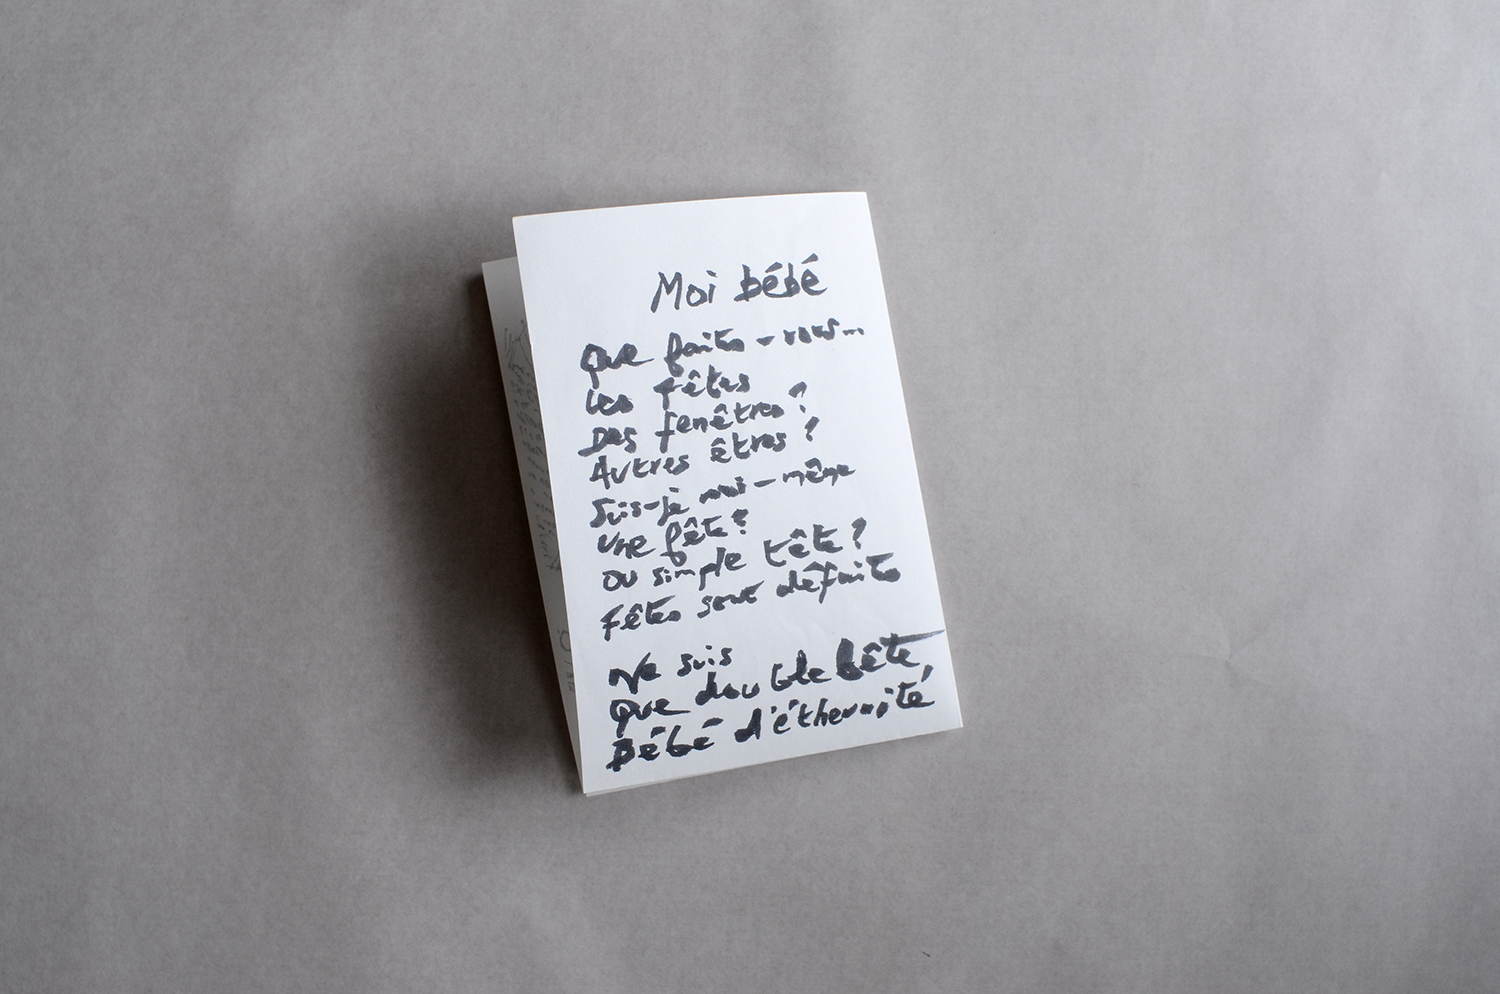 Moi bébé
Que faites-vous...
Les fêtes
Des fenêtres?
Autres êtres?
Suis-je moi-même
Une fête?
Ou simple tête?
Fêtes sont défaites
Ne suis
Que double bête,
Bébé d'éthernité